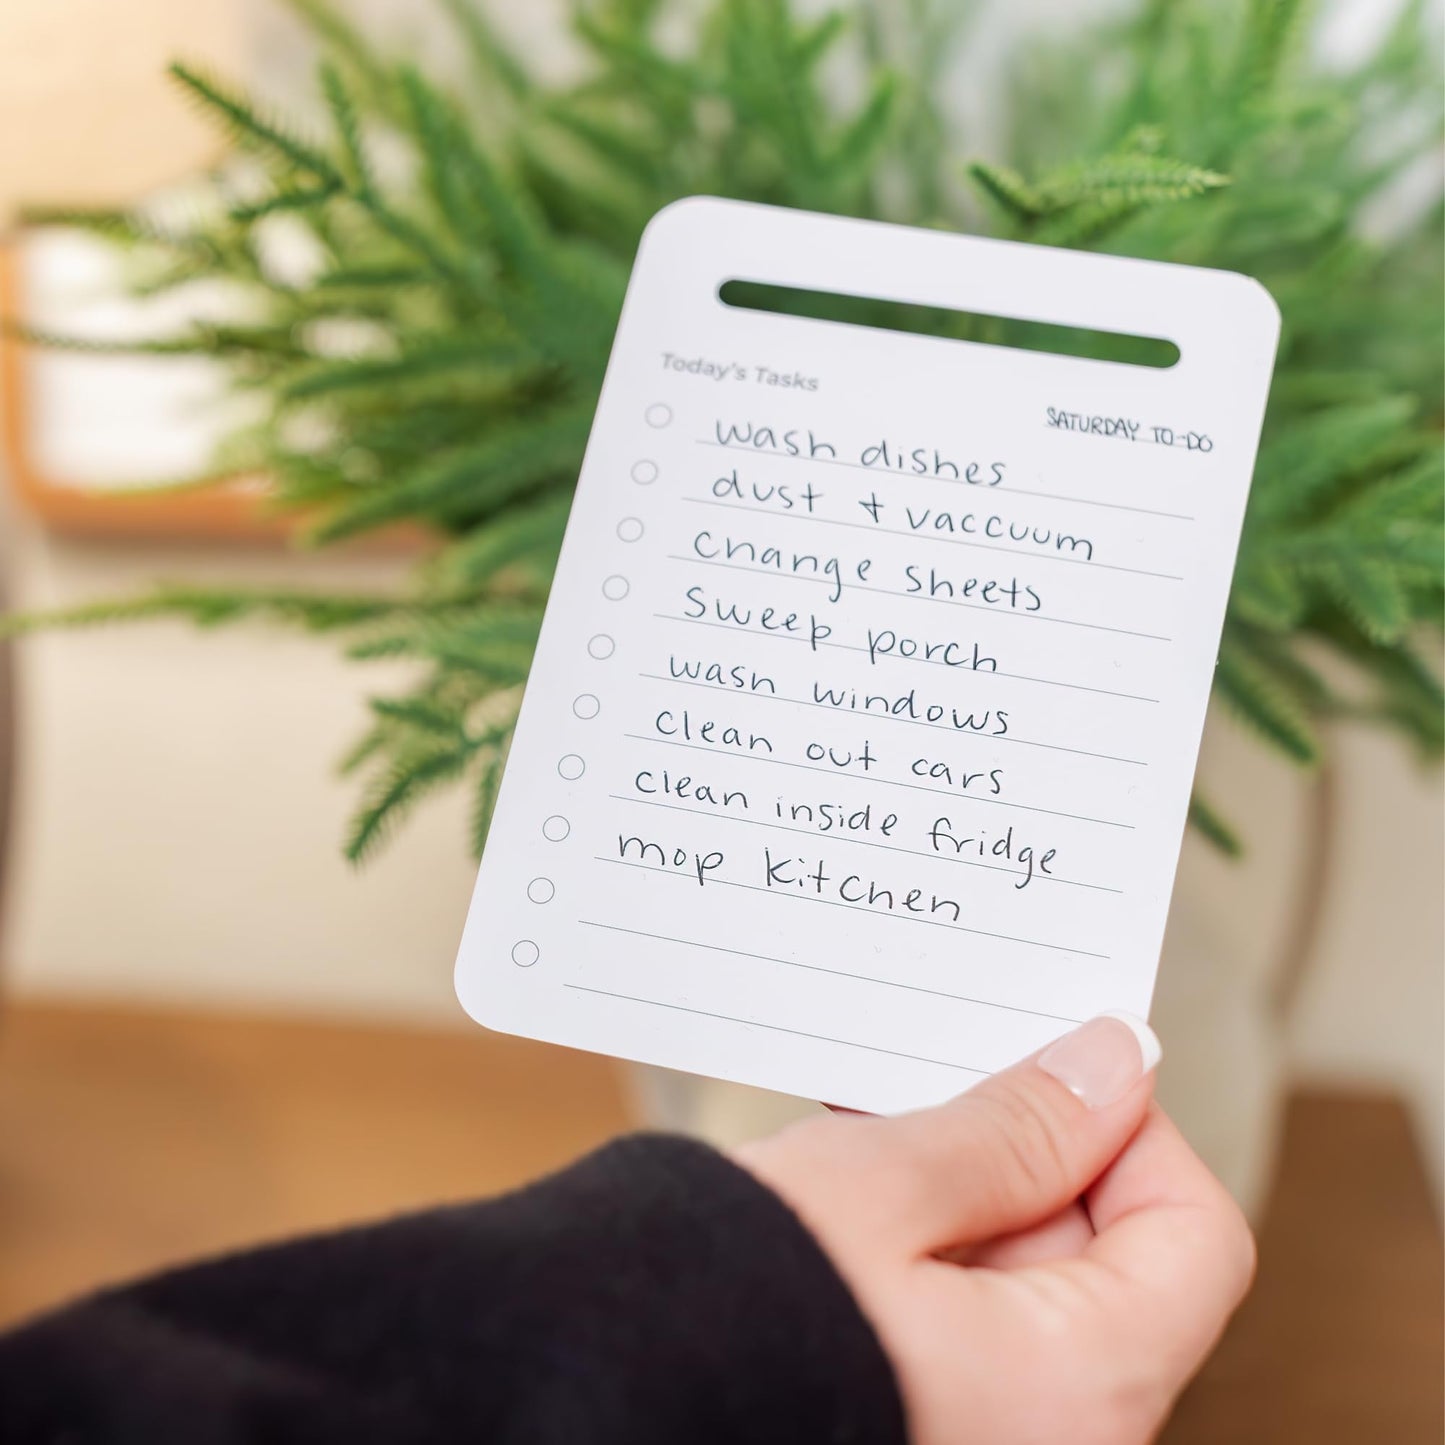 Today's Tasks
SATURDAY TO-DO
wash dishes
dust + vaccuum
change sheets
sweep porch
wash windows
clean out cars
clean inside fridge
mop kitchen